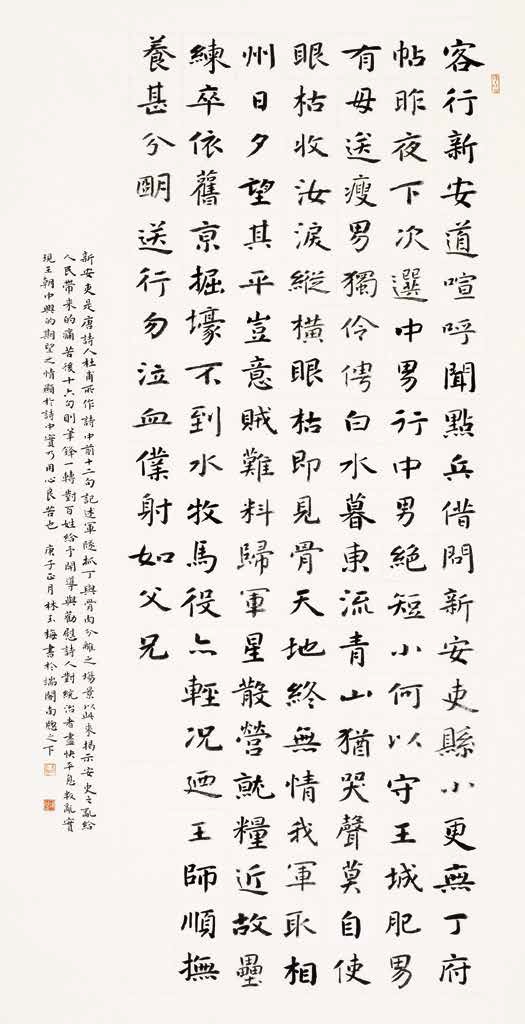 客行新安道喧呼聞點兵借問新安吏縣小更無丁府
帖昨夜下次選中男行中男絕短小何以守王城肥男
有母送瘦男獨伶俜白水暮東流青山猶哭聲莫自使
眼枯收汝淚縱橫眼枯即見骨天地終無情我軍取相
州日夕望其平豈意賊難料歸軍星散營就糧近故壘
練卒依舊京掘壕不到水牧馬役亦輕況迺王師順撫
養甚分明送行勿泣血僕射如父兄
新安吏是唐詩人杜甫所作詩中前十二句記述軍隊抓丁與骨肉分離之場景以此來揭示安史之亂給
人民帶來的痛苦後十六句則筆鋒一轉對百姓給予開導與勸慰詩人對統治者盡快平息叛亂實
現王朝中興的期望之情顯於詩中實乃用心良苦也 庚子正月林玉梅書於端閣南窗之下